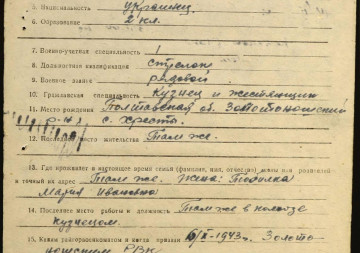 5. Национальность украинец
6. Образование 2 кл.
7. Военно-учетная специальность 1
8. Должностная квалификация стрелок
9. Военное звание рядовой
10. Гражданская специальность Кузнец и жестянщик
11. Место рождения Полтавская об. Золотоношский
р-н с.
12. Последнее место жительства Там же.
13. Где проживает в настоящее время семья (фамилия, имя, отчество) жены или родителей
и точный их адрес Там же. Жена:
Мария Ивановна
14. Последнее место работы и должность Там же в колхозе
Кузнецом.
15. Каким райгорвоенкоматом и когда призван 1943г. Золото-
ношским РВК